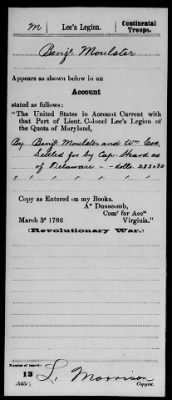 M | Lee's Legion. | Continental Troops.
Benjn Moulster
Appears as shown below in an
Account
stated as follows:
"The United States in Account Current with
that Part of Lieut. Colonel Lee's Legion of
the Quota of Maryland,
By Benjn Moulster and Wm Cox,
Settled for by Cap: as
of Delaware - - dolls. 222 30
Copy as Entered on my Books.
An Dunscomb,
Comr for Acots
March 3d 1786 Virginia."
(Revolutionary War.)
Number of record:
13
L. Morrison
(545) Copyist.